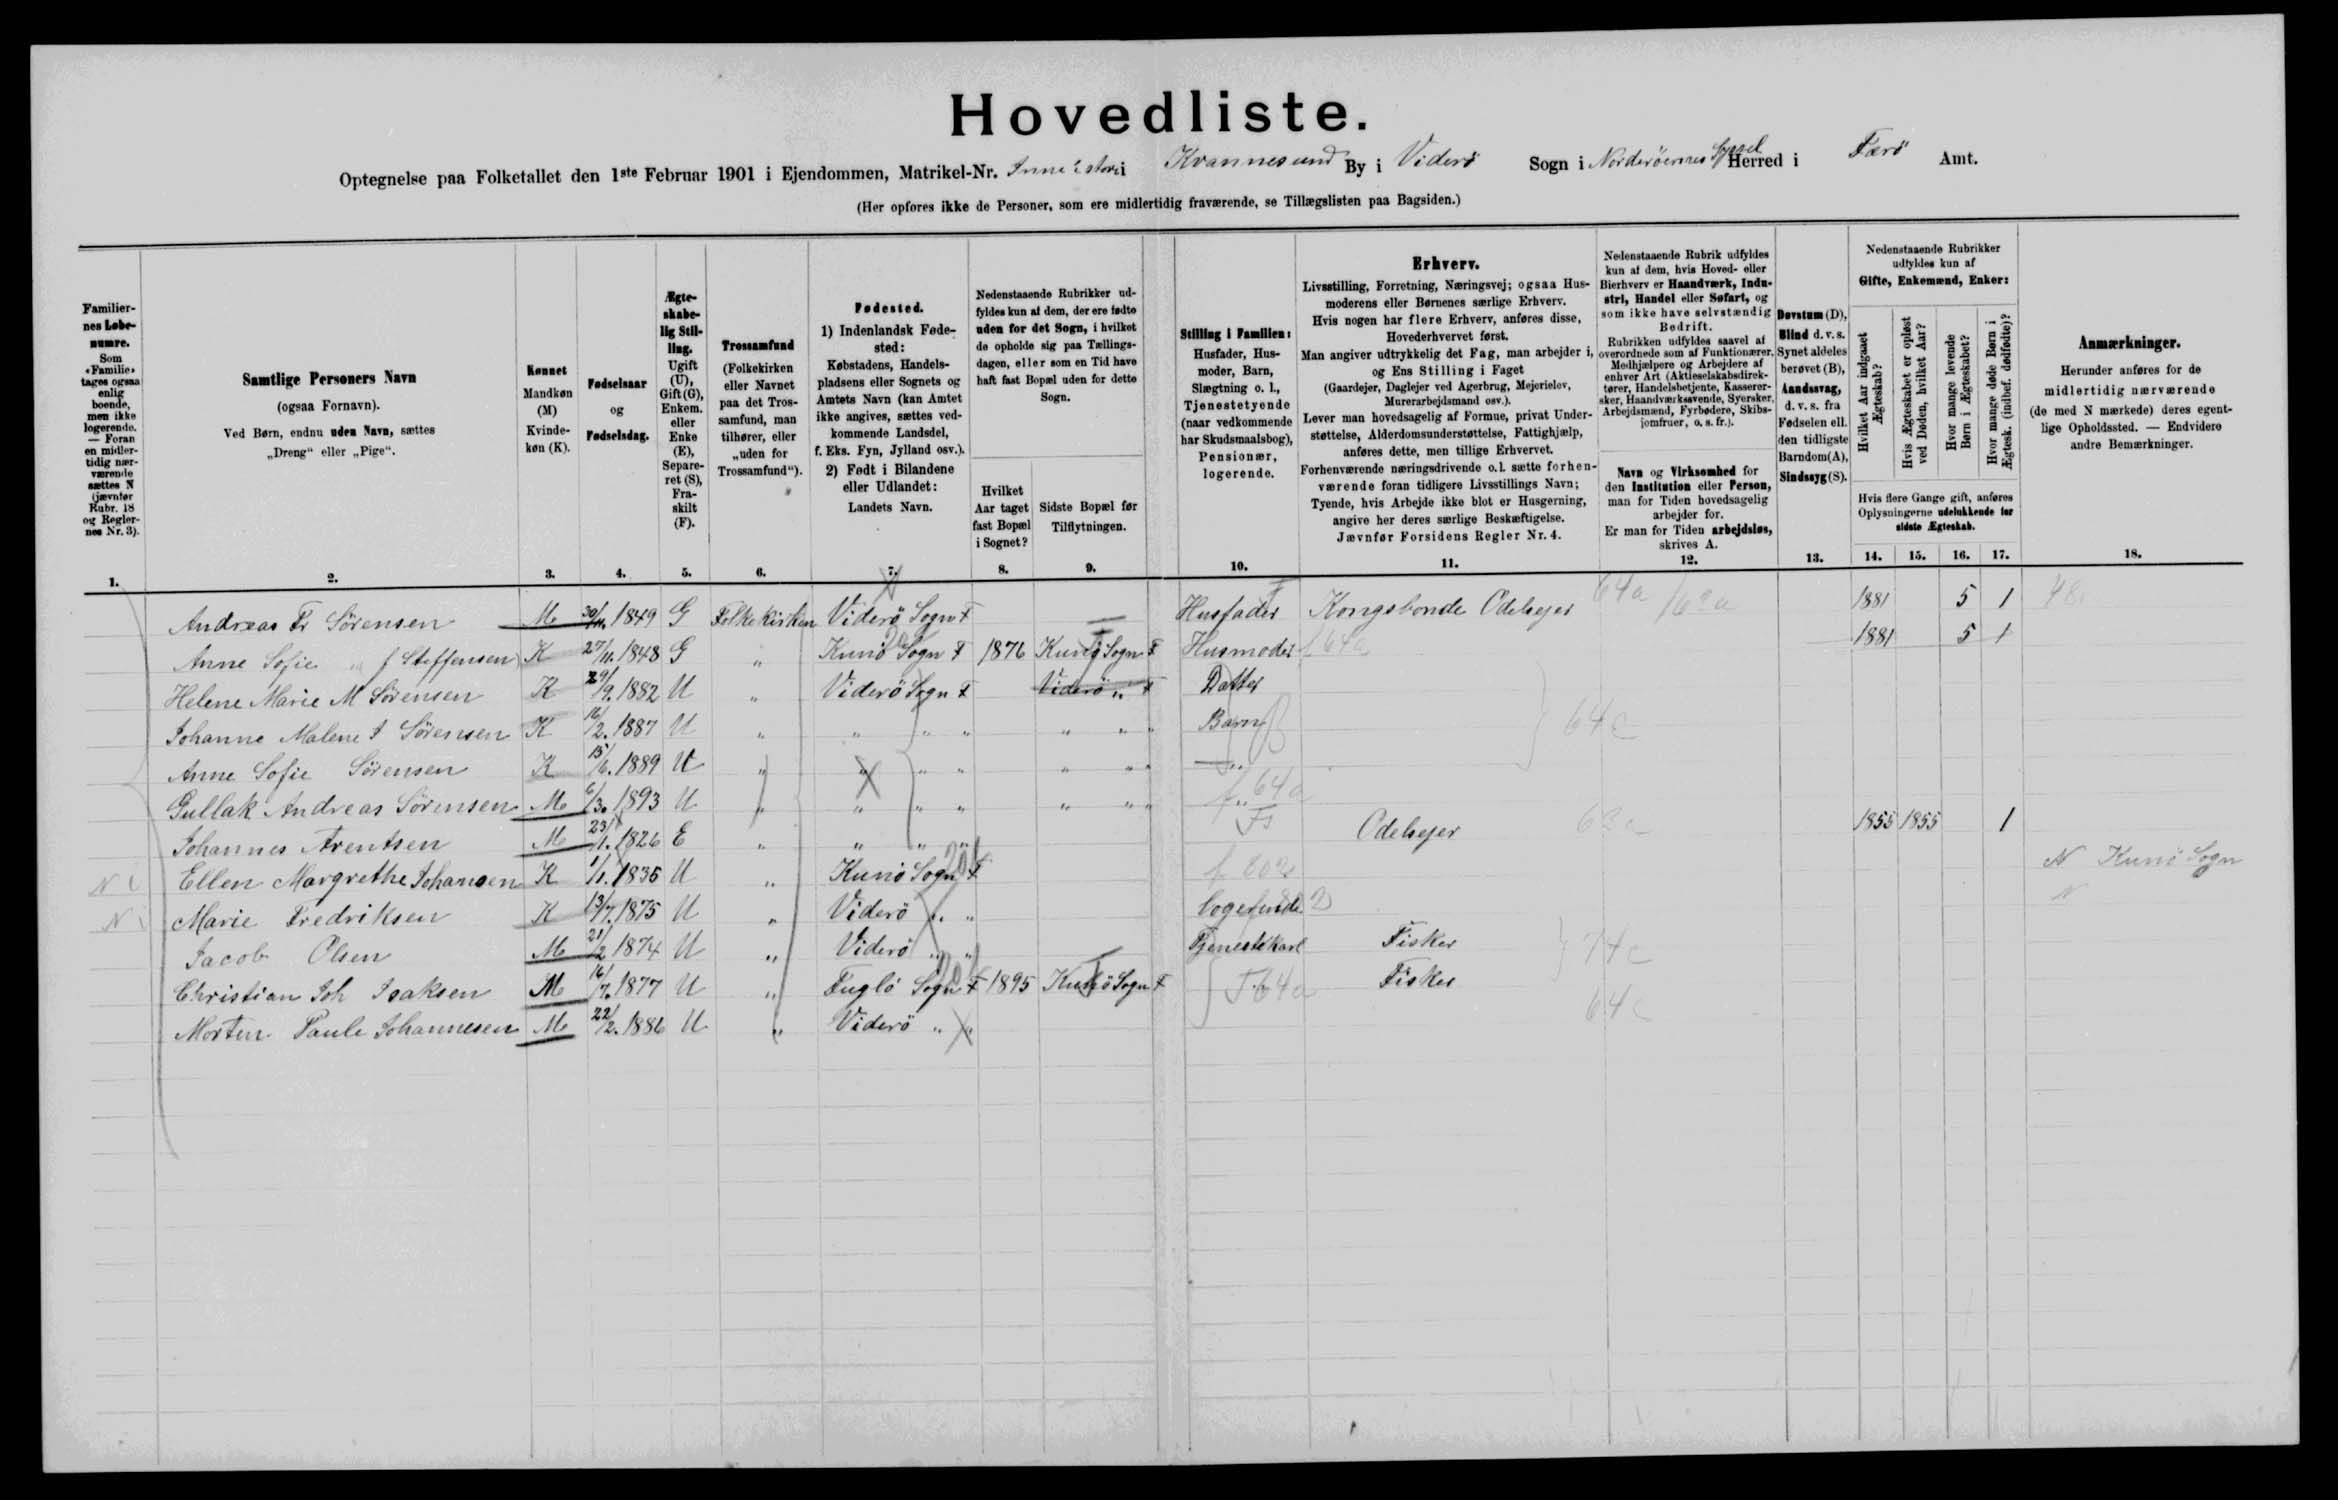 Hovedliste.
Optegnelse paa Folketallet den 1ste Februar 1901 i Ejendommen, Matrikel-Nr. Inni i stova i Kvannesund By i Viderö Sogn i Norderöernes Syssel Herred i Færö Amt.
(Her opføres ikke de Personer, som ere midlertidig fraværende, se Tillægslisten paa Bagsiden.)
Familiernes Løbenumre.
Som «Familie» tages ogsaa enlig boende, men ikke logerende. — Foran en midlertidig nærværende sættes N (jævnfør Rubr. 18 og Reglernes Nr. 3).
1.
Samtlige Personers Navn
(ogsaa Fornavn).
Ved Børn, endnu uden Navn, sættes „Dreng“ eller „Pige“.
2.
Kønnet
Mandkøn (M)
Kvindekøn (K).
3.
Fødselsaar og Fødselsdag.
4.
Ægteskabelig Stilling.
Ugift (U), Gift (G), Enkem. eller Enke (E), Separeret (S), Fraskilt (F).
5.
Trossamfund
(Folkekirken eller Navnet paa det Trossamfund, man tilhører, eller „uden for Trossamfund“).
6.
Fødested.
1) Indenlandsk Fødested:
Købstadens, Handelspladsens eller Sognets og Amtets Navn (kan Amtet ikke angives, sættes vedkommende Landsdel, f. Eks. Fyn, Jylland osv.).
2) Født i Bilandene eller Udlandet:
Landets Navn.
7.
Nedenstaaende Rubrikker udfyldes kun af dem, der ere fødte uden for det Sogn, i hvilket de opholde sig paa Tællingsdagen, eller som en Tid have haft fast Bopæl uden for dette Sogn.
Hvilket Aar taget fast Bopæl i Sognet?
8.
Sidste Bopæl før Tilflytningen.
9.
Stilling i Familien:
Husfader, Husmoder, Barn, Slægtning o. l., Tjenestetyende (naar vedkommende har Skudsmaalsbog), Pensionær, logerende.
10.
Erhverv.
Livsstilling, Forretning, Næringsvej; ogsaa Husmoderens eller Børnenes særlige Erhverv.
Hvis nogen har flere Erhverv, anføres disse, Hovederhvervet først.
Man angiver udtrykkelig det Fag, man arbejder i, og Ens Stilling i Faget
(Gaardejer, Daglejer ved Agerbrug, Mejerielev, Murerarbejdsmand osv.).
Lever man hovedsagelig af Formue, privat Understøttelse, Alderdomsunderstøttelse, Fattighjælp, anføres dette, men tillige Erhvervet.
Forhenværende næringsdrivende o.l. sætte forhenværende foran tidligere Livsstillings Navn;
Tyende, hvis Arbejde ikke blot er Husgerning, angive her deres særlige Beskæftigelse.
Jævnfør Forsidens Regler Nr. 4.
11.
Nedenstaaende Rubrik udfyldes kun af dem, hvis Hoved- eller Bierhverv er Haandværk, Industri, Handel eller Søfart, og som ikke have selvstændig Bedrift.
Rubrikken udfyldes saavel af overordnede som af Funktionærer, Medhjælpere og Arbejdere af enhver Art (Aktieselskabsdirektører, Handelsbetjente, Kasserersker, Haandværkssvende, Syersker, Arbejdsmænd, Fyrbødere, Skibsjomfruer, o. s. fr.).
Navn og Virksomhed for den Institution eller Person, man for Tiden hovedsagelig arbejder for.
Er man for Tiden arbejdsløs, skrives A.
12.
Døvstum (D), Blind d. v. s. Synet aldeles berøvet (B), Aandssvag, d. v. s. fra Fødselen ell. den tidligste Barndom (A), Sindssyg (S).
13.
Nedenstaaende Rubrikker udfyldes kun af
Gifte, Enkemænd, Enker:
Hvilket Aar indgaaet Ægteskab?
Hvis Ægteskabet er opløst ved Døden, hvilket Aar?
Hvor mange levende Børn i Ægteskabet?
Hvor mange døde Børn i Ægtesk. (indbef. dødfødte)?
Hvis flere Gange gift, anføres Oplysningerne udelukkende for sidste Ægteskab.
14. 15. 16. 17.
Anmærkninger.
Herunder anføres for de midlertidig nærværende (de med N mærkede) deres egentlige Opholdssted. — Endvidere andre Bemærkninger.
18.
Andreas Fr Sörensen M 30/11. 1849 G Folkekirken Viderö Sogn F — Husfader Kongsbonde Odelsejer 64a 62a 1881 5 1 48
Anne Sofie „ f Steffensen K 27/11. 1848 G „ Kunö Sogn F 1876 Kunö Sogn F Husmoder f 64a 1881 5 1
Helene Marie M Sörensen K 29/9. 1882 U „ Viderö Sogn F Viderö „ F Datter
Johanne Malene J Sörensen K 16/2. 1887 U „ „ „ „ „ „ „ Barn 64c
Anne Sofie Sörensen K 15/6. 1889 U „ „ „ „ „ „ „ — „
Gullak Andreas Sörensen M 6/3. 1893 U „ „ „ „ „ „ „ f „ 64a
Johannes Arentsen M 23/1. 1826 E „ „ „ „ Fs Odelsejer 62a 1855 1855 1
N Ellen Margrethe Johansen K 1/1. 1836 U „ Kunö Sogn F N Kunö Sogn
N Marie Fredriksen K 13/7. 1875 U „ Viderö „ „ logerende N
Jacob Olsen M 21/2 1874 U „ Viderö „ „ Tjenestekarl Fisker 74c
Christian Joh Isaksen M 16/7. 1877 U „ Fuglö Sogn F 1895 Kunö Sogn F F 64a Fisker
Morten Paule Johannesen M 22/2. 1886 U „ Viderö „ „ 64c